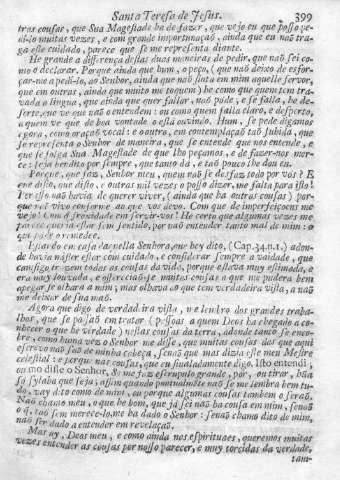 Santa Teresa de Jesus. 399
tras cousas, que Sua Magestade ha de fazer, que vejo eu que posso pe-
dí-lo muitas vezes, e com grande importunaçaõ, ainda que eu naõ tra-
ga este cuidado, parece que se me representa diante.
He grande a differença destas duas maneiras de pedir, que naõ sei co-
mo o declarar. Porque ainda que hum, o peço, (que naõ deixo de esfor-
çar-me a pedi-lo, ao Senhor, ainda que naõ sinta em mim aquelle fervor,
que em outras, ainda que muito me toquem) he como que quem tem tra-
vada a lingua, que ainda que quer fallar, naõ póde, e se falla, he de
sorte, que ve que naõ o entendem: ou como quem falla claro, e desperto,
a quem ve que de boa vontade o está ouvindo. Hum, se pede digamos
agora, como oraçaõ vocal: e o outro, em contemplaçaõ taõ subida, que
se representa o Senhor de maneira, que se entende que nos entende, e
que se folga Sua Magestade de que lho peçamos, e de fazer-nos mer-
cê: seja bendito por sempre, que tanto dá, e taõ pouco lhe dou eu.
Porque, que faz, Senhor meu, quem naõ se desfaz todo por vós? E
que disto, que disto, e outras mil vezes o posso dizer, me falta para isso!
Por isso naõ havia de querer viver, (ainda que ha outras cousas) por-
que naõ vivo conforme ao que vos devo. Com que de imperfeiçoens me
vejo! Com que froxidade em servir-vos! He certo que algumas vezes me
parece queria estar sem sentido, por naõ entender tanto mal de mim: o
que póde o remedee.
Estando em casa daquella Senhora, que hey dito, (Cap.34.n.1.) adon-
de havia mister estar com cuidado, e considerar sempre a vaidade, que
comsigo trazem todas as cousas da vida, porque estava muy estimada, e
era muy louvada, e offereciaõ-se muitas cousas a que me pudera bem
apegar se olhara a mim; mas olhava ao que tem verdadeira vista, a naõ
me deixar de sua maõ.
Agora que digo de verdadeira vista, me lembro dos grandes traba-
lhos, que se passaõ em tratar (pessoas a quem Deos ha chegado a co-
nhecer o que he verdade) nestas cousas da terra, adonde tanto se enco-
bre, como huma vez o Senhor me disse, que muitas cousas das que aqui
escrevo naõ saõ de minha cabeça, senaõ que mas dizia este meu Mestre
celestial: e porque nas cousas, que eu sinaladamente digo, Isto entendi,
ou mo disse o Senhor, se me faz escrupulo grande, pôr, ou tirar, huma
só syllaba que seja; assim quando pontualmente naõ se me lembra bem tu-
do, vay dito como de mim, ou porque algumas cousas tambem o seraõ.
Naõ chamo meu, o que he bom, que já sei naõ ha cousa em mim, senaõ
o que taõ sem merece-lo, me ha dado o Senhor: senaõ chamo dito de mim,
naõ ser dado a entender em revelaçaõ.
Mas ay, Deos meu, e como ainda nos espirituaes, queremos muitas
vezes entender as cousas por nosso parecer, e muy torcidas da verdade,
tam-